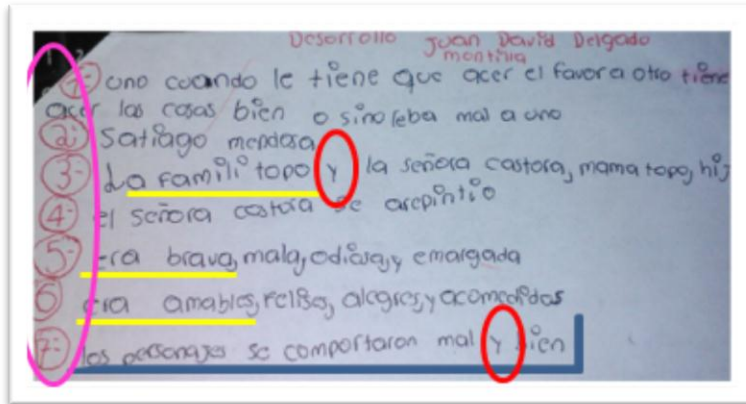 Desorrollo Juan David Delgado
montilla
1- uno cuando le tiene que acer el favor a otro tiene
acer las cosas bien o sino leba mal a uno
2- Satiago mendosa
3- La famili topo y la señora castora, mama topo, hij
4- el señora castora se arepintio
5- era brava, mala, odiosa, y emargada
6 era amables, felise, alegres, y acomedidos
7- los personajes se comportaron mal y bien